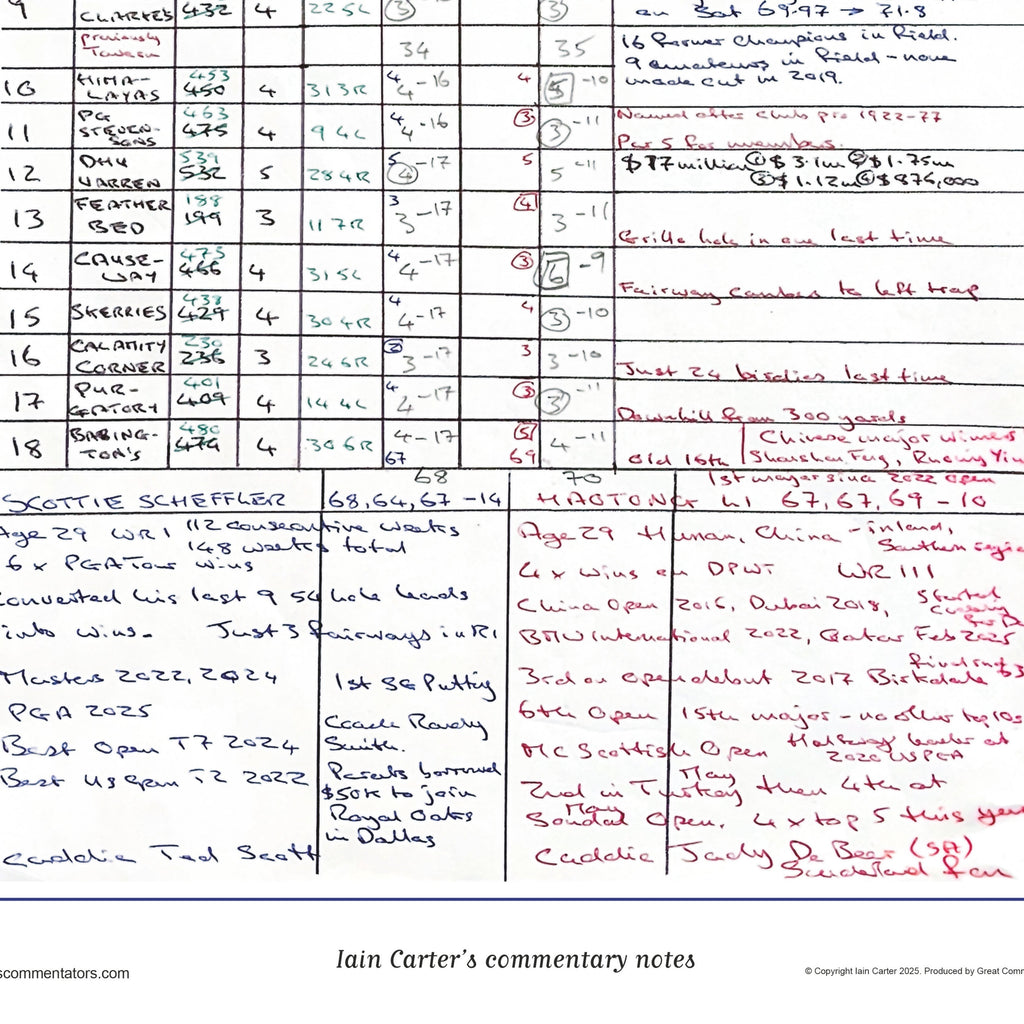 9 CLARKES 432 4 225L 3 3 on Sat 69.97 → 71.8
Previously Tavern 34 35 16 former Champions in field.
9 amateurs in field - none
made cut in 2019.
10 HIMA-LAYAS 453 450 4 313R 4 4 -16 4 5 -10
11 PG STEVEN-SONS 463 475 4 94L 4 4 -16 3 3 -11 Named after club pro 1922-77
Par 5 for members.
12 DHU VARREN 531 532 5 284R 5 4 -17 5 5 -11 $17 million ① $3.1m ② $1.75m
③ $1.12m ④ $876,000
13 FEATHER BED 188 199 3 117R 3 3 -17 4 3 -11 Grillo hole in one last time
14 CAUSE-WAY 473 466 4 315L 4 4 -17 3 6 -9 Fairway cambers to left trap
15 SKERRIES 433 429 4 304R 4 4 -17 4 3 -10
16 CALAMITY CORNER 230 236 3 246R 2 3 -17 3 3 -10 Just 24 birdies last time
17 PUR-GATORY 401 409 4 144L 4 4 -17 3 3 -11 Downhill from 300 yards
18 BABING-TON'S 480 474 4 306R 4 -17 5 4 -11 Old 16th Chinese major winners
67 69 Shanshan Feng, Ruoning Yin
68 70 1st major since 2022 Open
SCOTTIE SCHEFFLER 68, 64, 67 -14 HAOTONG LI 67, 67, 69 -10
Age 29 WR1 112 consecutive weeks
148 weeks total
6 x PGA Tour wins
Converted his last 9 54 hole leads
into wins. Just 3 fairways in R1
Masters 2022, 2024
PGA 2025
Best Open T7 2024
Best US Open T2 2022
Caddie Ted Scott
1st SG Putting
Coach Randy
Smith.
Parents borrowed
$50k to join
Royal Oaks
in Dallas
Age 29 Hunan, China - inland,
Southern region
4 x wins on DPWT WR 111
China Open 2016, Dubai 2018, Started
BMW International 2022, Qatar Feb 2025
3rd on Open debut 2017 Birkdale
Final rnd 63
6th Open 15th major - no other top 10s
MC Scottish Open Halfway leader at
2020 USPGA
2nd in Turkey May then 4th at
Soudal Open. May 4 x top 5 this year
Caddie Jady De Beer (SA)
Sunderland fan
Iain Carter's commentary notes
scommentators.com
© Copyright Iain Carter 2025. Produced by Great Comm